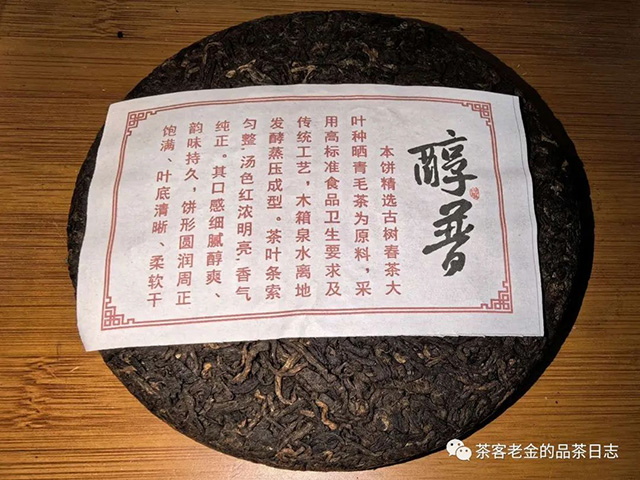 醇普
本饼精选古树春茶大
叶种晒青毛茶为原料，采
用高标准食品卫生要求及
传统工艺，木箱泉水离地
发酵蒸压成型。茶叶条索
匀整，汤色红浓明亮，香气
纯正。其口感细腻醇爽、
韵味持久，饼形圆润周正
饱满、叶底清晰、柔软干
茶客老金的品茶日志